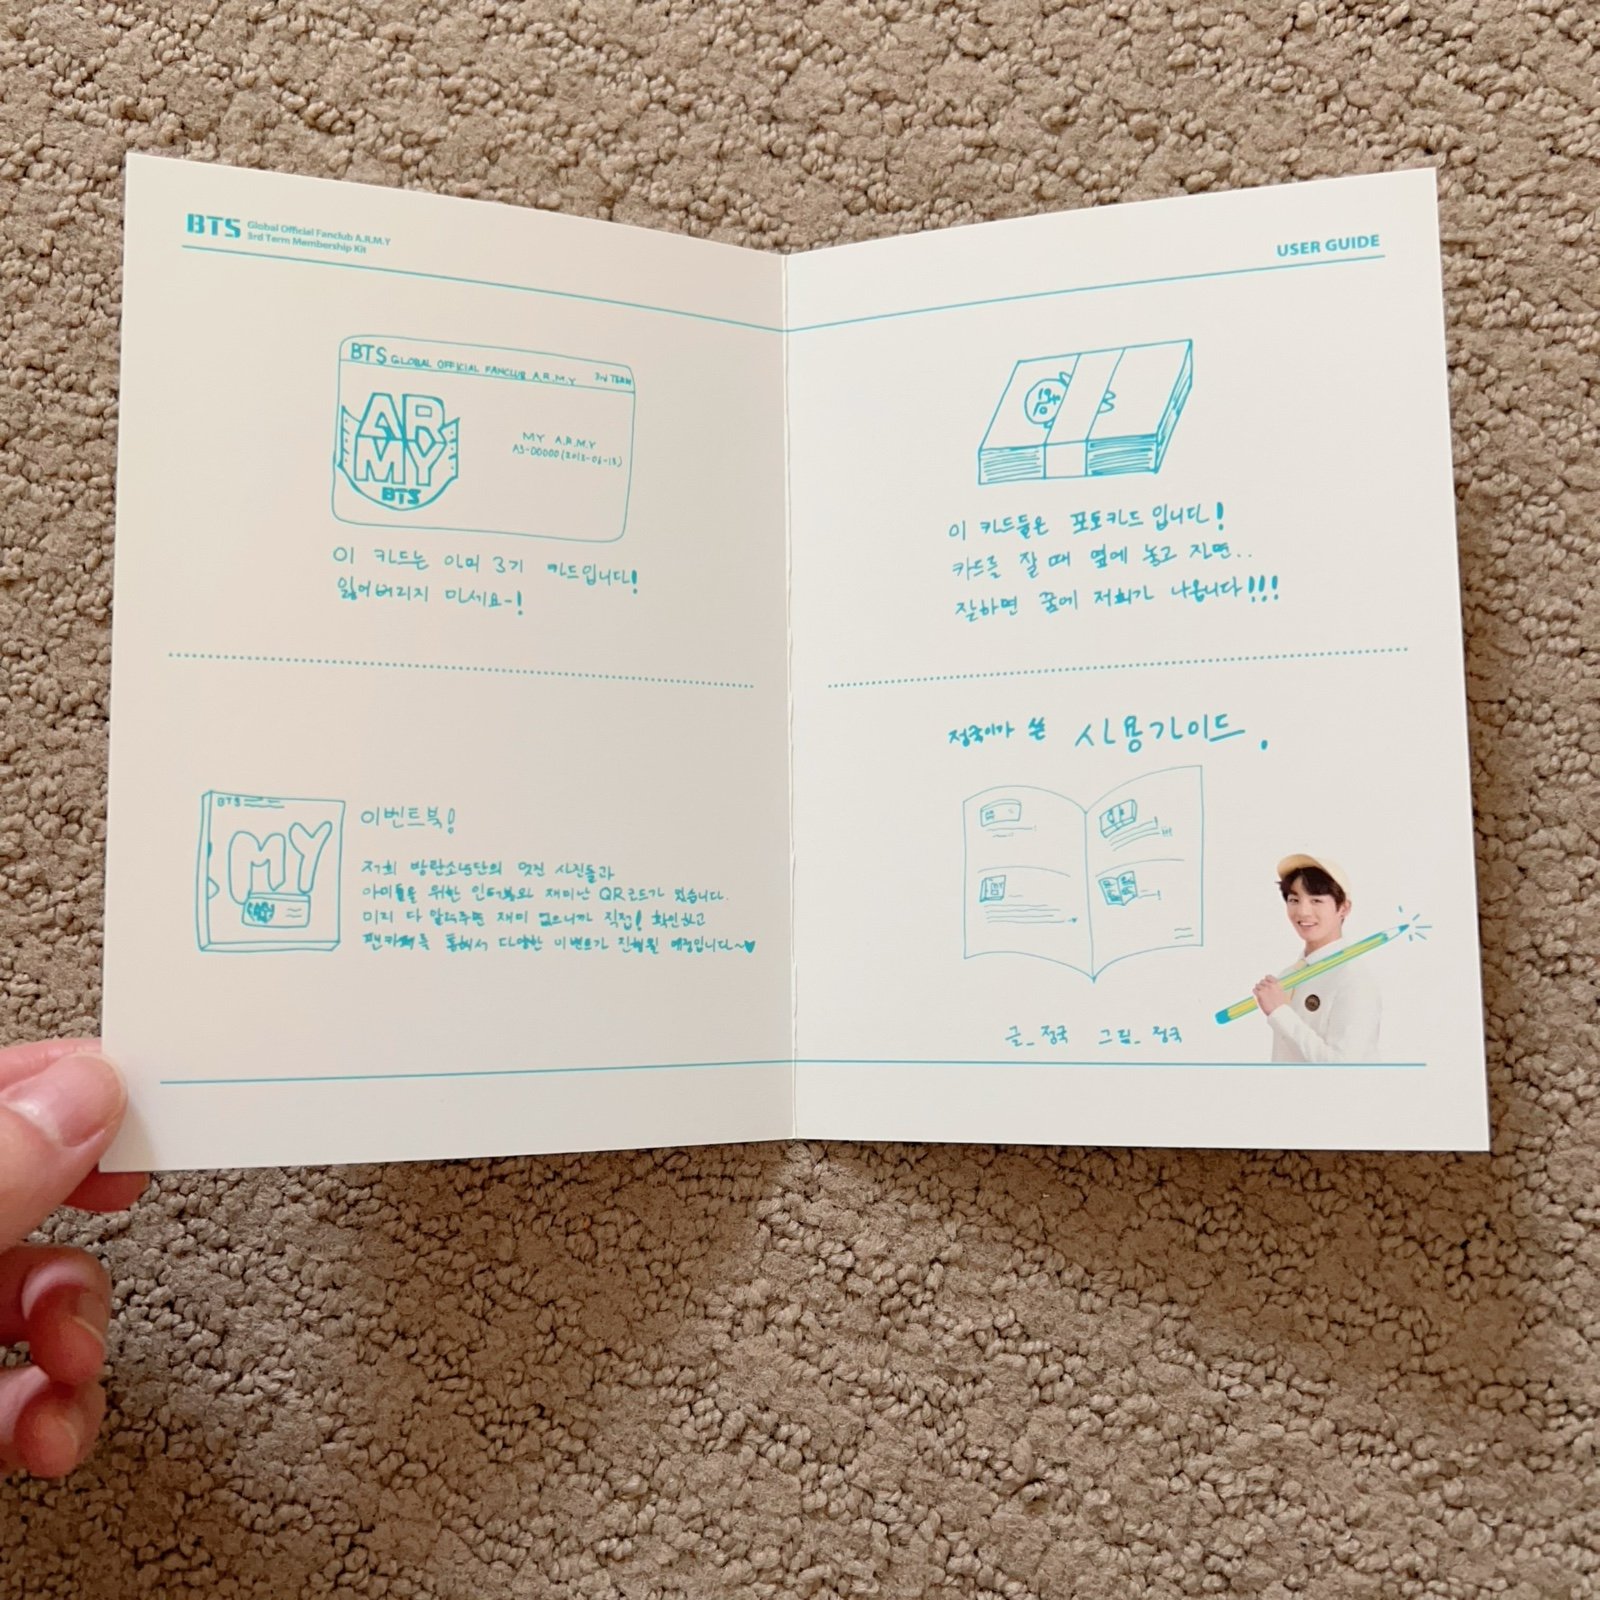 BTS Global Official Fanclub A.R.M.Y
3rd Term Membership Kit
BTS GLOBAL OFFICIAL FANCLUB A.R.M.Y 3rd TERM
ARMY
BTS
MY A.R.M.Y
A3-00000(2013-06-13)
이 카드는 아미 3기 카드입니다!
잃어버리지 마세요~!
BTS
MY
이벤트북!
저희 방탄소년단의 멋진 사진들과
아미들을 위한 인터뷰와 재미난 QR코드가 있습니다.
미리 다 알려주면 재미 없으니까 직접! 확인하고
팬카페를 통해서 다양한 이벤트가 진행될 예정입니다~♥
USER GUIDE
이 카드들은 포토카드입니다!
카드를 잘 때 옆에 놓고 자면..
잘하면 꿈에 저희가 나옵니다!!!
정국이가 쓴 사용가이드.
글_정국 그림_정국